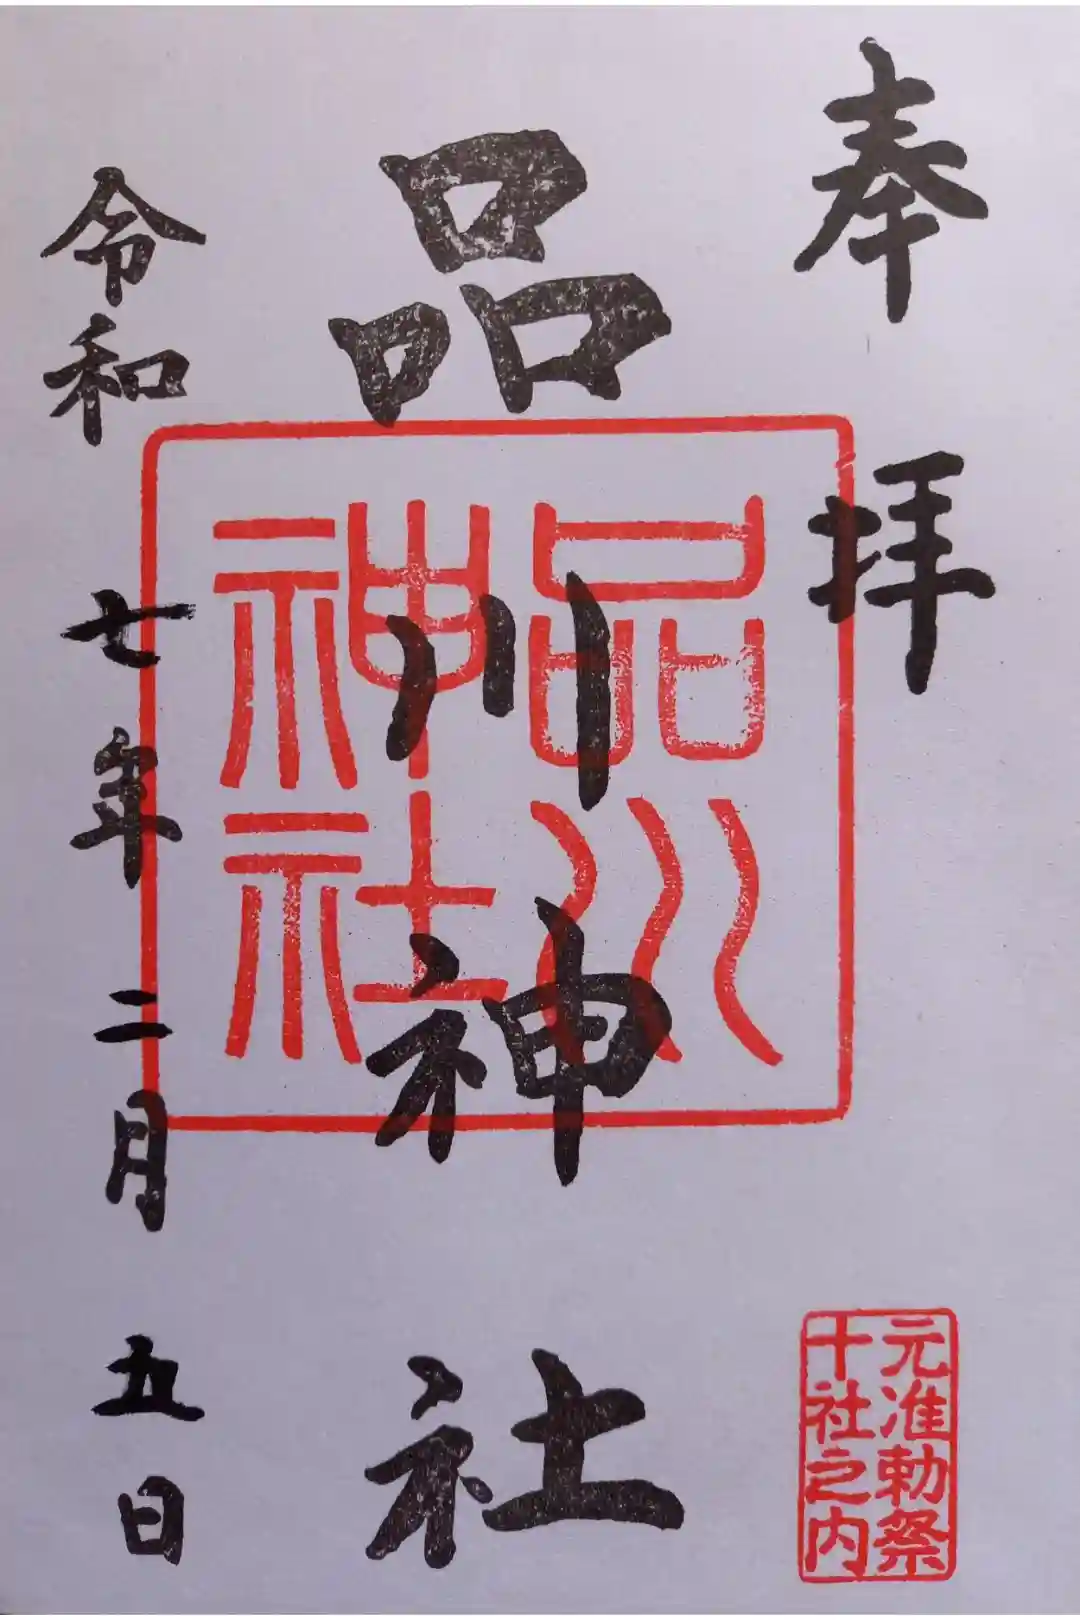 奉拝
元准勅祭
十社之内
品川神社
品川
神社
令和七年二月五日